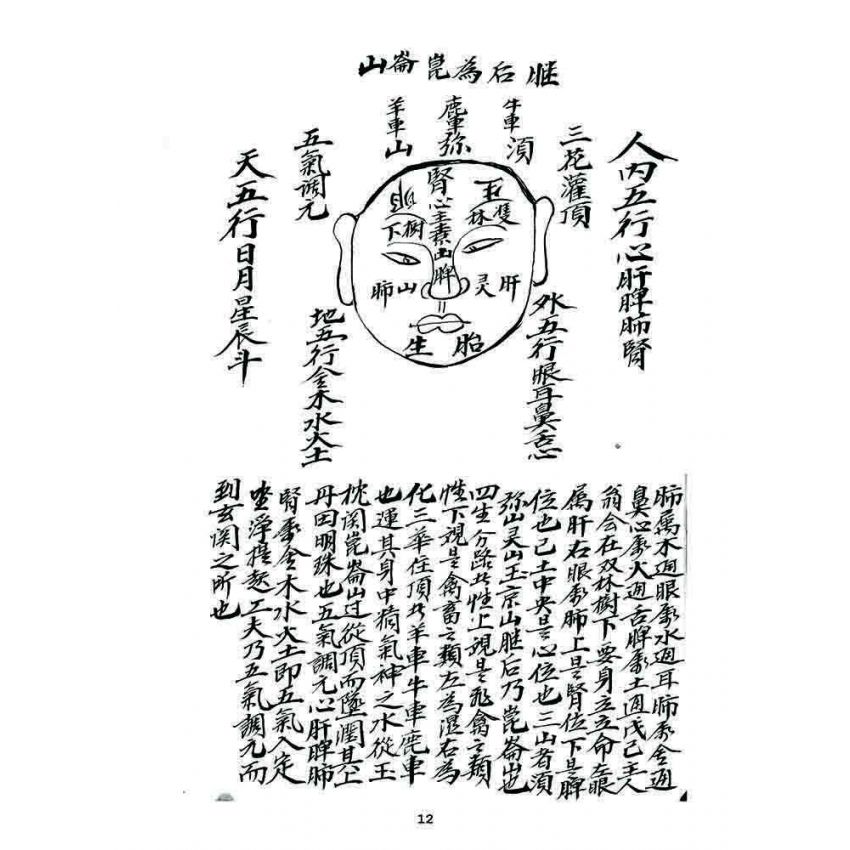 脽后為崑崙山
牛車
鹿車
羊車
須
弥
山
三花灌頂
五氣調元
人内五行心肝脾肺腎
天五行日月星辰斗
外五行眼耳鼻舌心
地五行金木水火土
玉
雙林
樹下
腎心
脾
肝灵
山肺
胎生
肺属木週眼属水週耳肺属金週
鼻心属火週舌脾属土週戊己主人
翁会在双林樹下要身立立命左眼
属肝右眼属肺上是腎位下是脾
位也己土中央是心位也三山者須
弥山灵山玉京山脽后乃崑崙也
四生分路性上視是飛禽之類
性下視是禽畜之類左為湿右為
化三華住頂羊車牛車鹿車
也運其身中精氣神之水從玉
枕関崑崙山过從頂而墜潤其上
丹田明珠也五氣調元心肝脾肺
腎属金木水火土即五氣入定
坐浄提起工夫乃五氣調元而
到玄関之所也
12